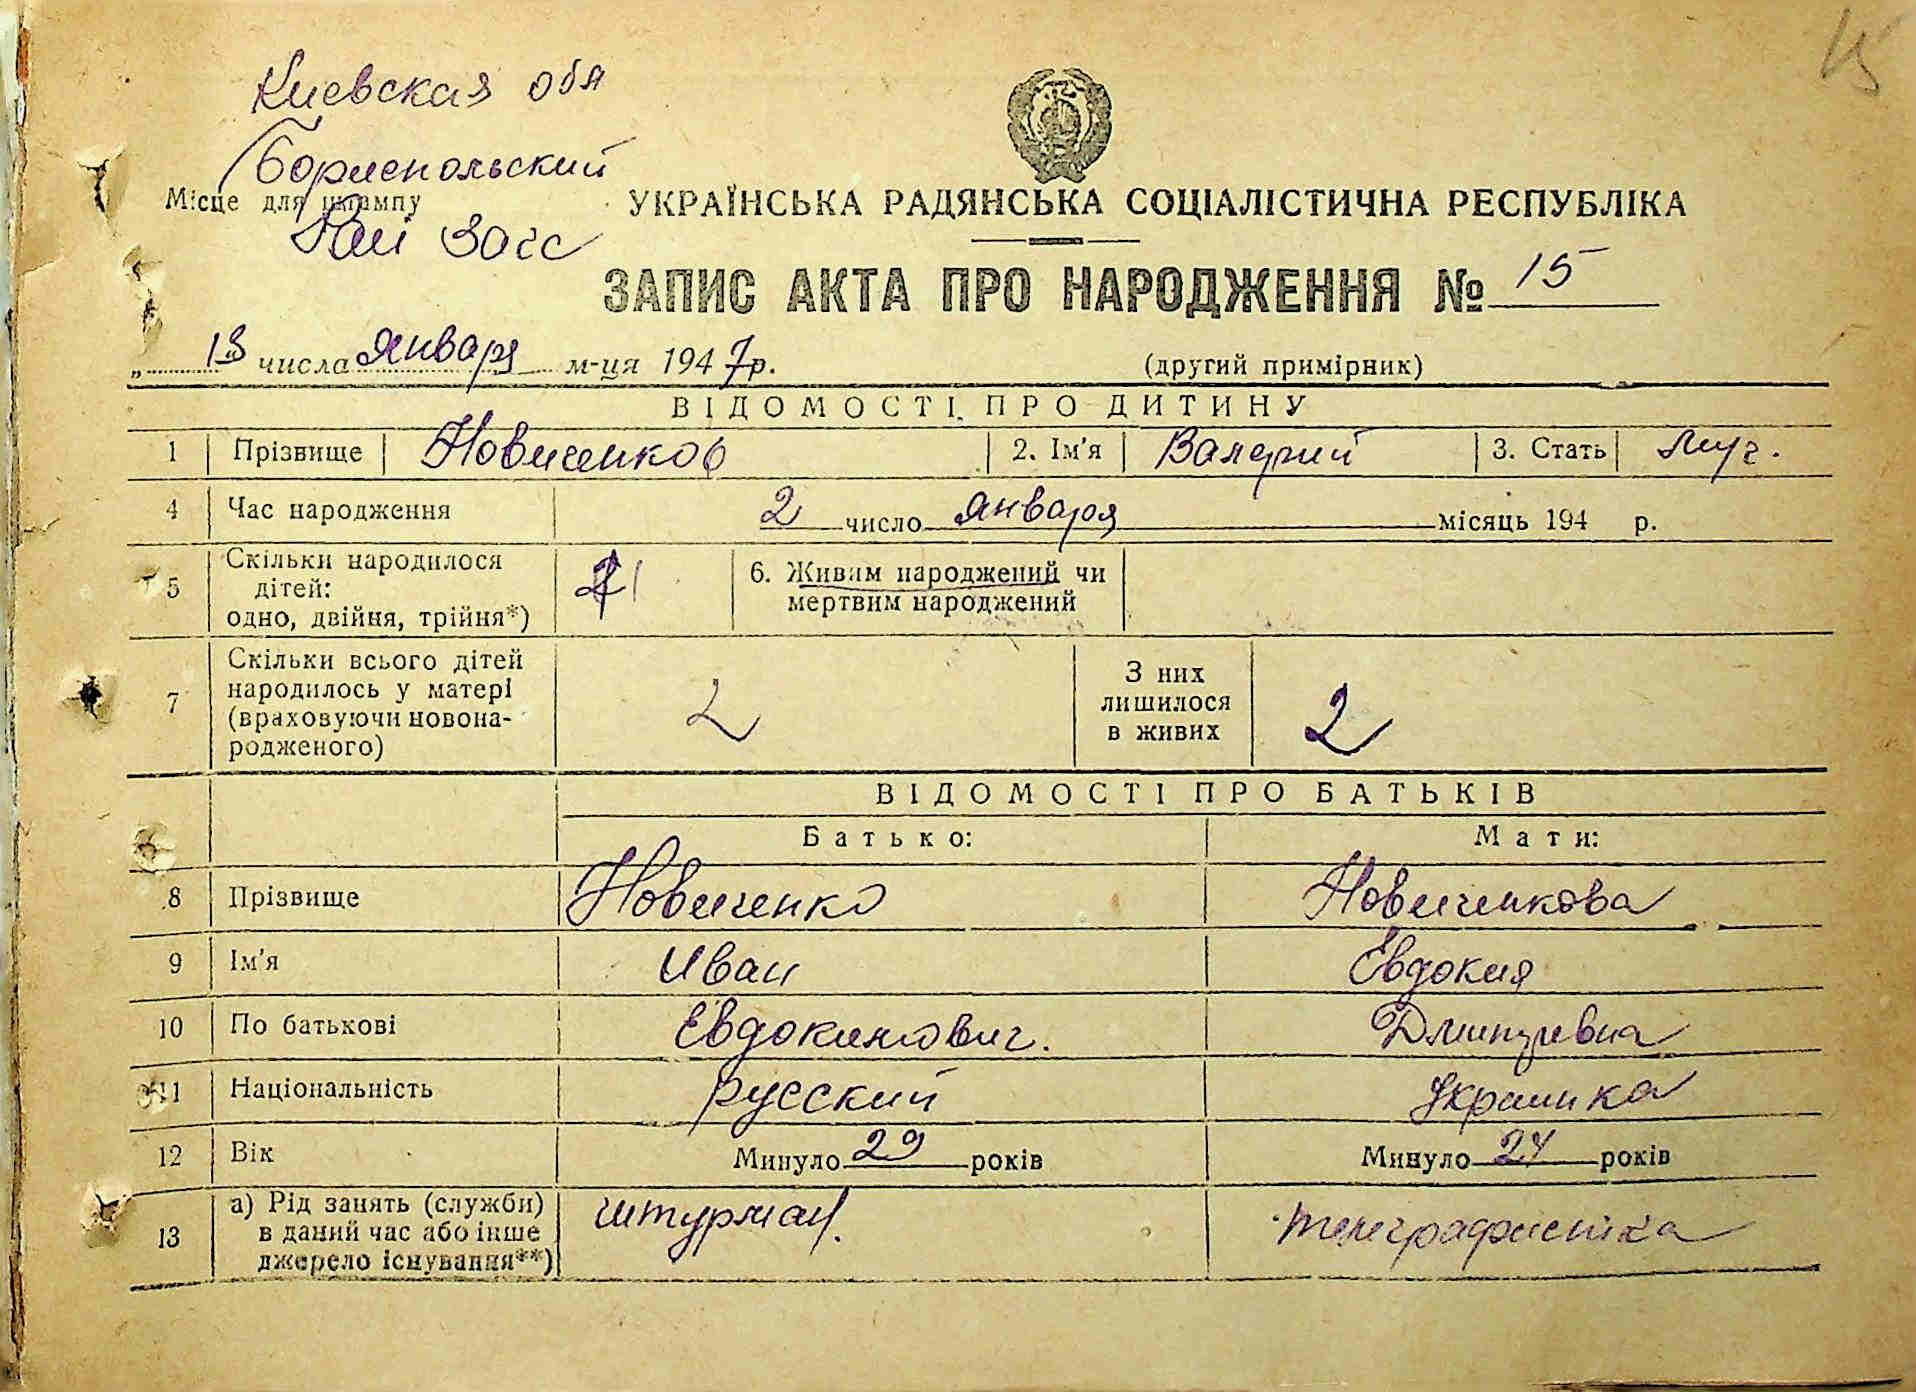 15
Киевская обл
Бориспольский
Місце для штампу
Рай Загс
УКРАЇНСЬКА РАДЯНСЬКА СОЦІАЛІСТИЧНА РЕСПУБЛІКА
ЗАПИС АКТА ПРО НАРОДЖЕННЯ № 15
„ 13 числа января м-ця 1947 р.
(другий примірник)
ВІДОМОСТІ ПРО ДИТИНУ
1 Прізвище Новиченков 2. Ім'я Валерий 3. Стать муж.
4 Час народження 2 число января місяць 194 р.
5 Скільки народилося дітей: одно, двійня, трійня*) 1 6. Живим народжений чи мертвим народжений
7 Скільки всього дітей народилось у матері (враховуючи новонародженого) 2 З них лишилося в живих 2
ВІДОМОСТІ ПРО БАТЬКІВ
Батько: Мати:
8 Прізвище Новиченко Новиченкова
9 Ім'я Иван Евдокия
10 По батькові Евдокимович. Дмитревна
11 Національність русский Украинка
12 Вік Минуло 29 років Минуло 24 років
13 а) Рід занять (служби) в даний час або інше джерело існування**) штурман. телеграфистка